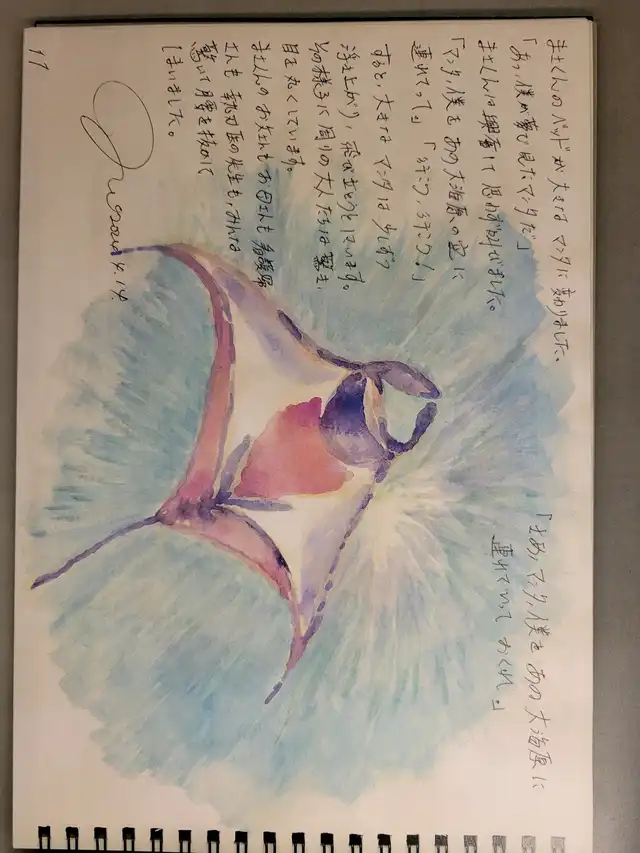 まさくんのベッドが大きな マンタに 変わりました。
「あ、僕が夢で見たマンタだ」
まさくんは興奮して思わず叫びました。
「マンタ、僕をあの大海原の空に
連れてって。」「ジャンプ、ジャンプ!」
すると、大きなマンタは少しずつ
浮き上がり、飛び立とうとしています。
その様子に周りの大人たちは驚き、
目を丸くしています。
まさくんのお父さんもお母さんも看護婦
さんも執刀医の先生も、みんな
驚いて腰を抜かして
しまいました。
4.14.
17
「さあ、マンタ、僕をあの大海原に
連れていって おくれ。」